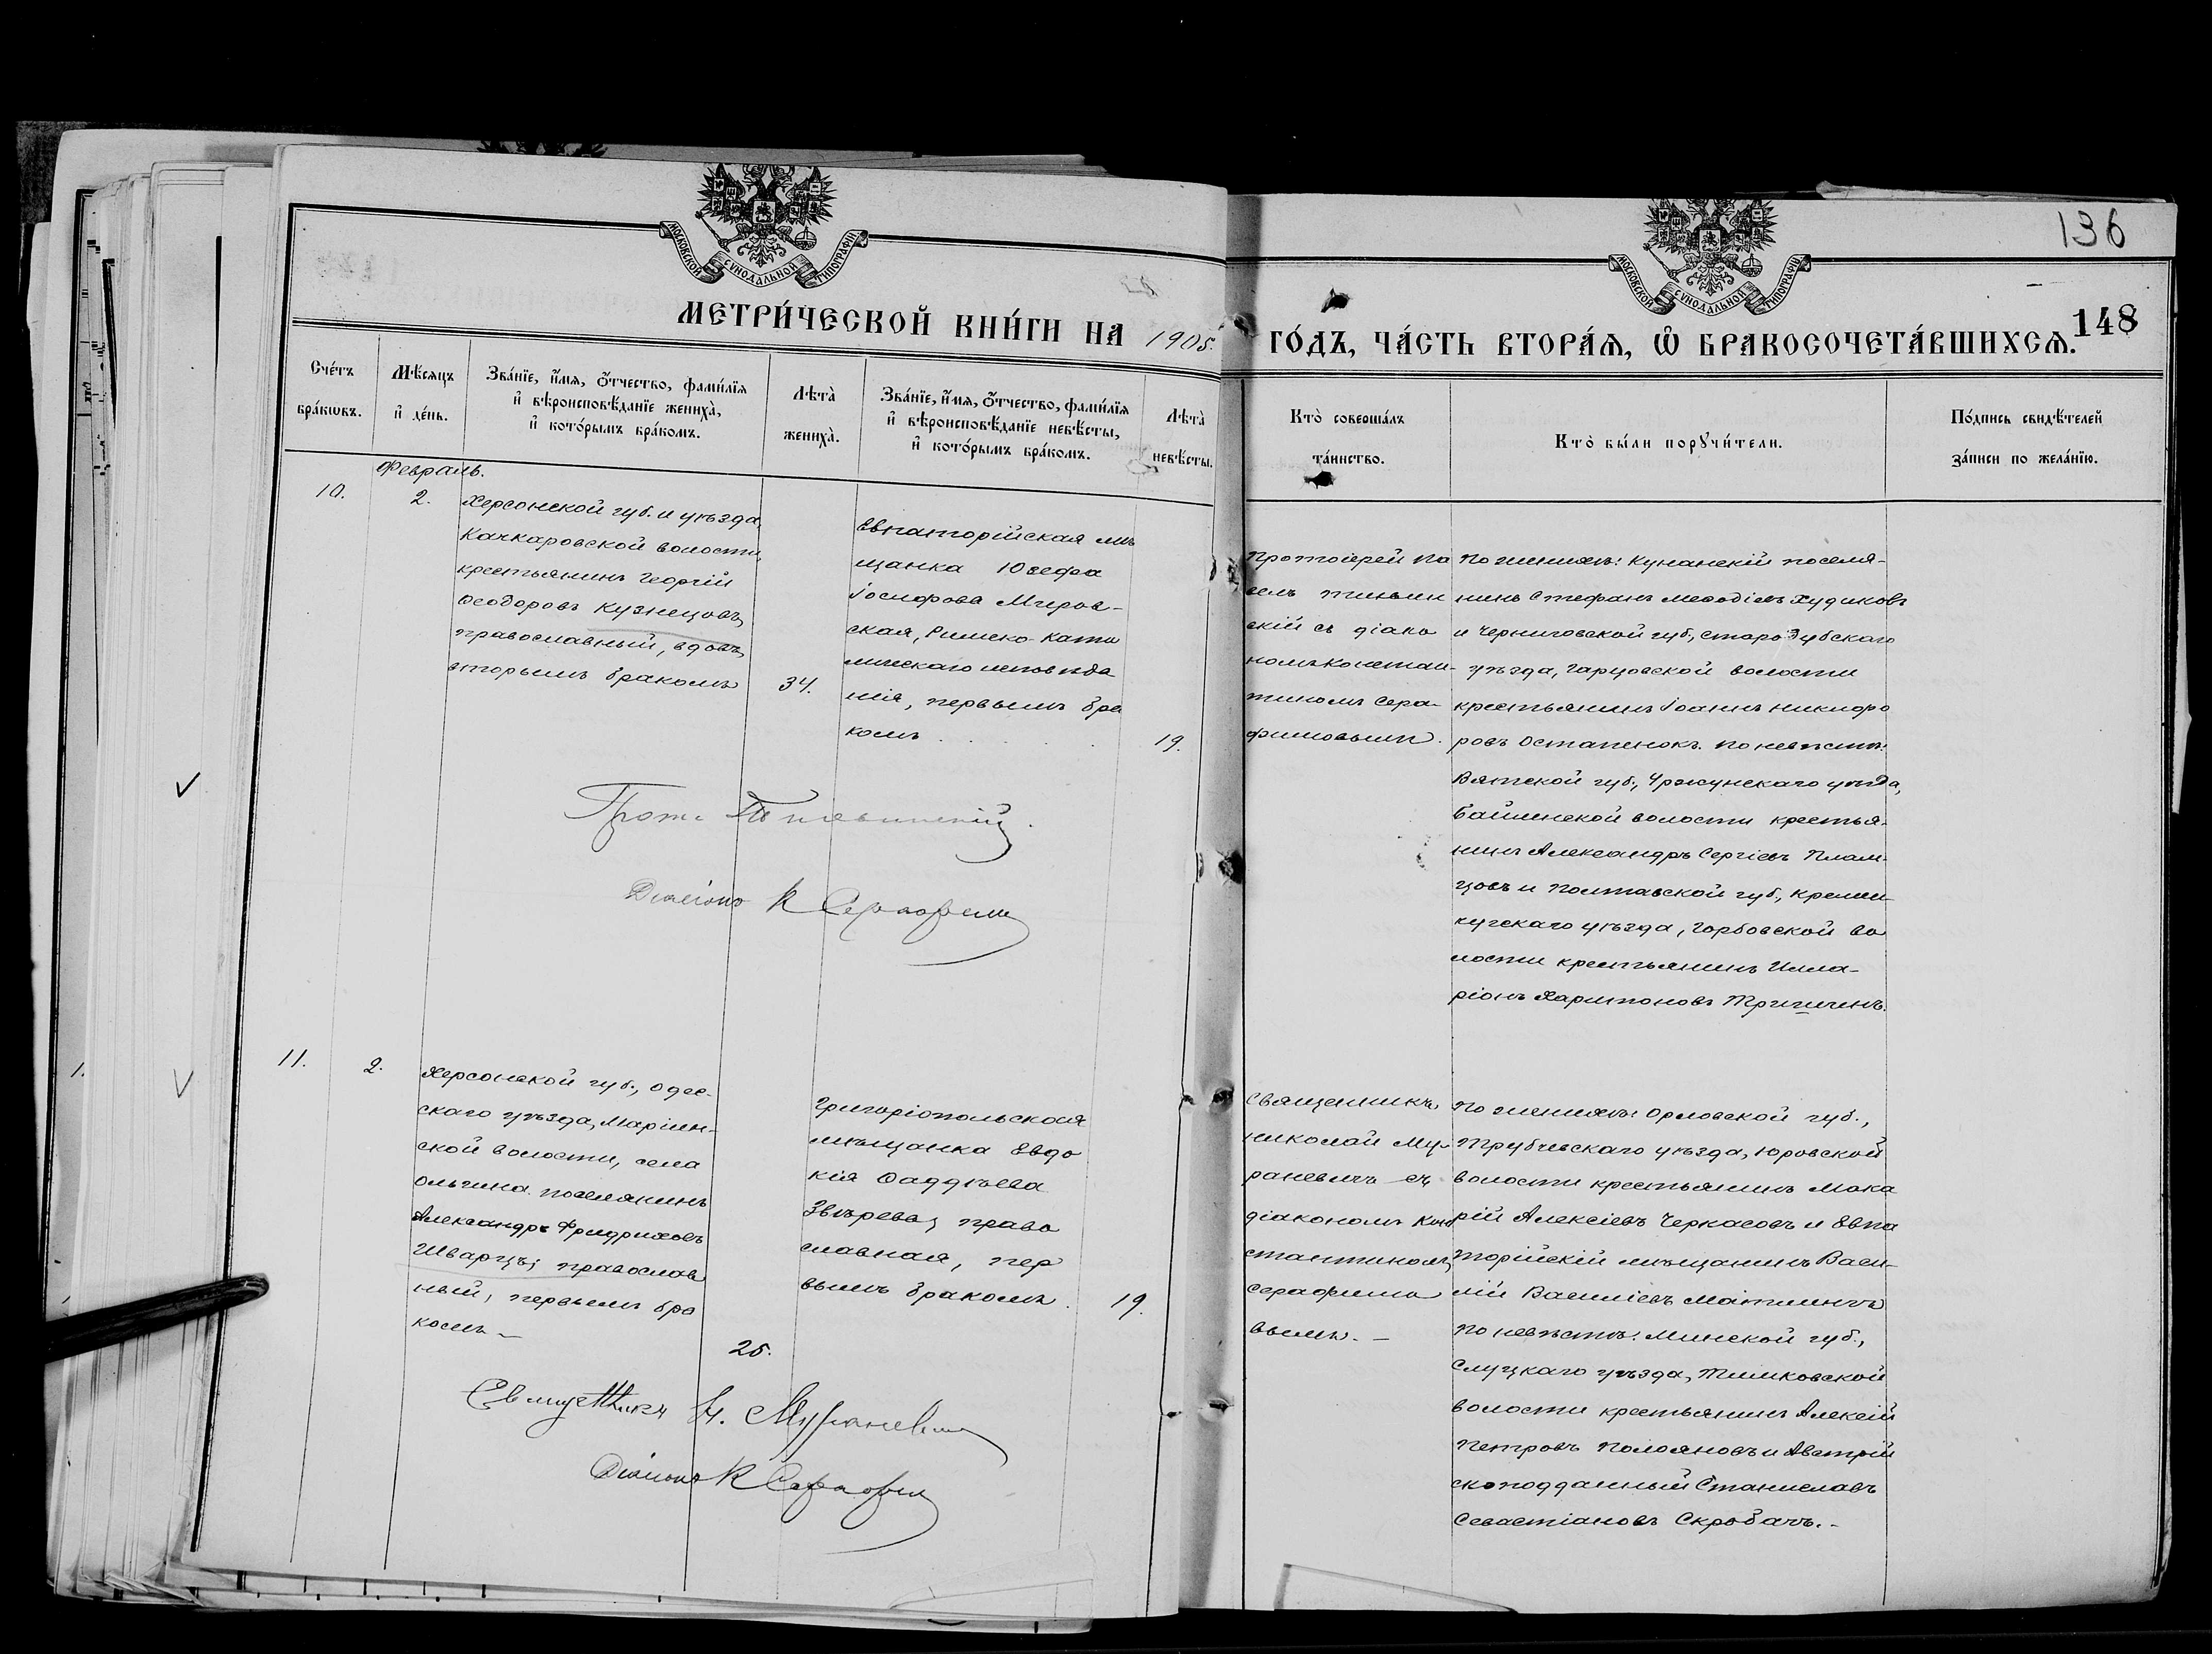 136
148
МОСКОВСКОЙ СѴНОДАЛЬНОЙ ТИПОГРАФІИ
МОСКОВСКОЙ СѴНОДАЛЬНОЙ ТИПОГРАФІИ
МЕТРИ́ЧЕСКОЙ КНИ́ГИ НА 1905.
ГО́ДЪ, ЧА́СТЬ ВТОРА́Ѧ, Ѡ҆ БРАКОСОЧЕТА́ВШИХСѦ.
Сче́тъ
бра́кѡвъ.
Мѣ́сѧцъ
и҆ де́нь.
Зва́нїе, и҆́мѧ, ѻ҆́тчество, фами́лїѧ
и҆ вѣроисповѣ́данїе жениха̀,
и҆ кото́рымъ бра́комъ.
Лѣта̀
жениха̀.
Зва́нїе, и҆́мѧ, ѻ҆́тчество, фами́лїѧ
и҆ вѣроисповѣ́данїе невѣ́сты,
и҆ кото́рымъ бра́комъ.
Лѣта̀
невѣ́сты.
Кто̀ соверша́лъ
та́инство.
Кто̀ бы́ли порꙋчи́тели.
По́дпись свидѣ́телей
за́писи по жела́нїю.
Февраль.
10.
2.
Херсонской губ. и уѣзда,
Качкаровской волости,
крестьянинъ Георгій
Ѳеодоровъ Кузнецовъ,
православный, вдовъ,
вторымъ бракомъ
34.
Евпаторійская мѣ
щанка Юзефа
Іосифова Миров-
ская, Римско-като
лическаго исповѣда
нія, первымъ бра
комъ
19.
Протоіерей Па
велъ Тихвин
скій съ діако
номъ Констан-
тиномъ Сера-
фимовымъ.
По женихѣ: Кунанскій поселя-
нинъ Стефанъ Меѳодіевъ Худиковъ
и Черниговской губ., Стародубскаго
уѣзда, Гарцовской волости
крестьянинъ Іоаннъ Никифо
ровъ Остапенокъ. По невѣстѣ:
Вятской губ., Уржумскаго уѣзда,
Байсинской волости крестья-
нинъ Александръ Сергіевъ
и Полтавской губ., Кремен-
чугскаго уѣзда, Горбовской во
лости крестьянинъ Илла-
ріонъ Харитоновъ
Прот.
Діаконъ К Серафимо
11.
2.
Херсонской губ., Одес-
скаго уѣзда, Маріин-
ской волости, села
Ольгина поселянинъ
Александръ Фридриховъ
Шварцъ, православ
ный, первымъ бра
комъ –
25.
Григоріопольская
мѣщанка Евдо
кія Ѳаддѣева
Звѣрева, право
славная, пер
вымъ бракомъ.
19.
Священникъ
Николай Му-
раневичъ съ
діакономъ Кон
стантиномъ
Серафимо
вымъ. –
По женихѣ: Орловской губ.,
Трубчевскаго уѣзда, Юровской
волости крестьянинъ Мака
рій Алексіевъ Черкасовъ и Евпа
торійскій мѣщанинъ Васи-
лій Василіевъ
По невѣстѣ: Минской губ.,
Слуцкаго уѣзда, Тимковской
волости крестьянинъ Алексій
Петровъ Полояновъ и Австрій
скоподданный Станиславъ
Севастіановъ Скробачъ. –
Священникъ Н. Мураневичъ
Діаконъ К Серафимо
1.